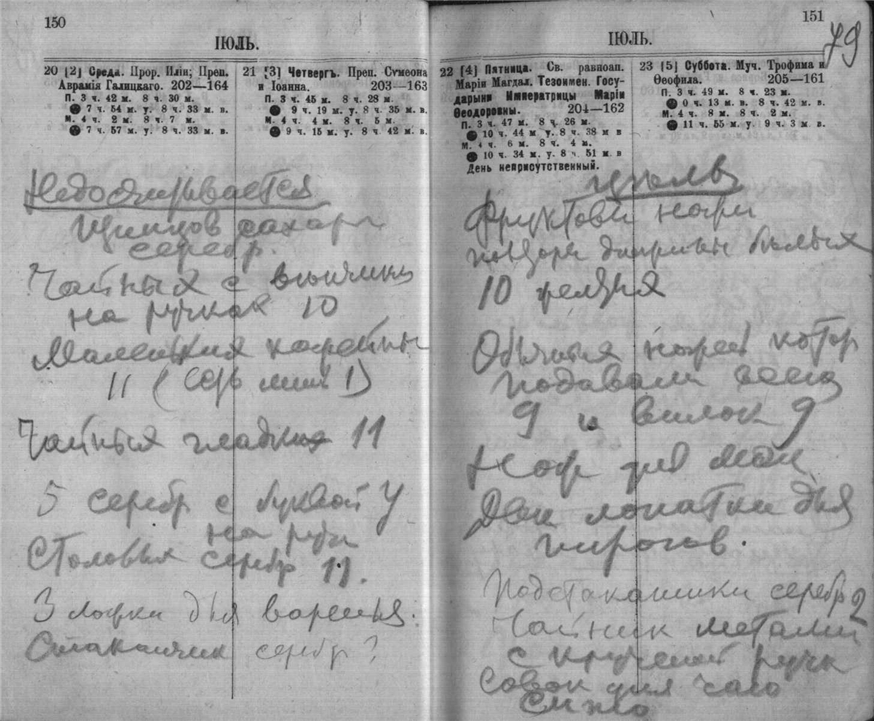 150
ІЮЛЬ.
20 [2] Среда. Прор. Иліи; Преп.
Аврамія Галицкаго. 202—164
П. 3 ч. 42 м. 8 ч. 30 м.
7 ч. 54 м у. 8 ч. 33 м. в.
М. 4 ч. 2 м. 8 ч. 7 м.
7 ч. 57 м у. 8 ч. 33 м. в.
21 [3] Четвергъ. Преп. Сѵмеона
и Іоанна. 203—163
П. 3 ч. 45 м. 8 ч. 28 м.
9 ч. 19 м. у. 8 ч. 35 м. в.
М. 4 ч. 4 м. 8 ч. 5 м.
9 ч. 15 м. у. 8 ч. 42 м. в.
Недосчитывается
Щипцов сахарн
серебр.
Чайных с
на ручках 10
Маленькия кофейны
11 ( 1)
Чайныя гладкия 11
5 серебр с буквой У
на ручк
Столовых серебр 11.
3 ложки для варенья.
Стаканчик серебр?
151
79
ІЮЛЬ.
22 [4] Пятница. Св. равноап.
Маріи Магдал. Тезоимен. Госу-
дарыни Императрицы Маріи
Ѳеодоровны. 204—162
П. 3 ч. 47 м. 8 ч. 26 м.
10 ч. 44 м у. 8 ч. 38 м в
М. 4 ч. 6 м. 8 ч. 4 м.
10 ч. 34 м. у. 8 ч. 51 м. в
День неприсутственный.
23 [5] Суббота. Муч. Трофима и
Ѳеофила. 205—161
П. 3 ч. 49 м. 8 ч. 23 м.
0 ч. 13 м. в. 8 ч. 42 м. в.
М. 4 ч. 8 м. 8 ч. 2 м.
11 ч. 55 м у. 9 ч. 3 м. в.
Фруктовы ножи
белых
10
Обычныя ножей котор
подавали всегд
9 и вилок 9
Нож для
Две лопатки для
пирогов.
Подстаканники серебр 2
Чайник металич
с крученой ручк
Совок для чаю